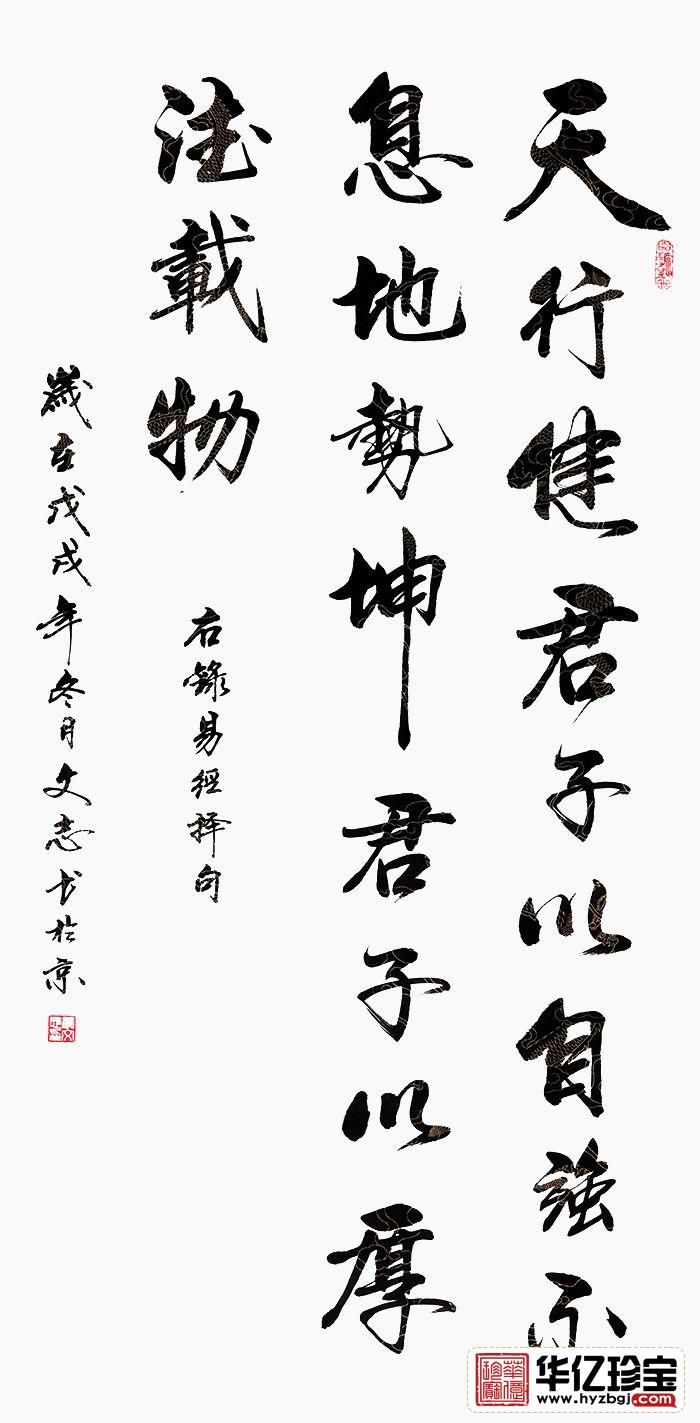 天行健君子以自強不
息地勢坤君子以厚
德載物
右錄易經擇句
歲在戊戌年冬月文志书於京
华亿珍宝
www.hyzbgj.com